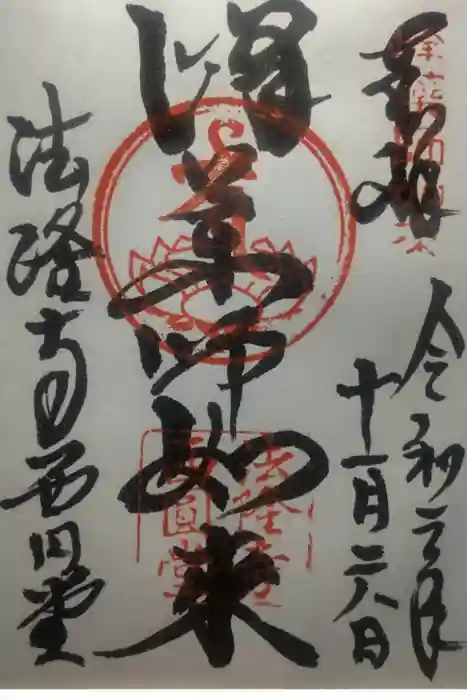 奉拝
令和元年
十一月二八日
峰薬師如来
法隆寺西円堂
法隆寺
西圓堂